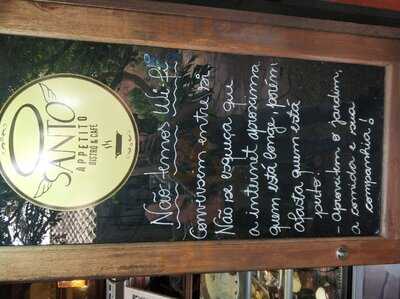 SANTO
APPETITO
BISTRÔ & CAFÉ
Não temos Wi-fi
Conversem entre si
Não se esqueça que
a internet aproxima
quem está longe, porém
afasta quem está
perto.
- Aproveitem o jardim,
a comida e sua
companhia!